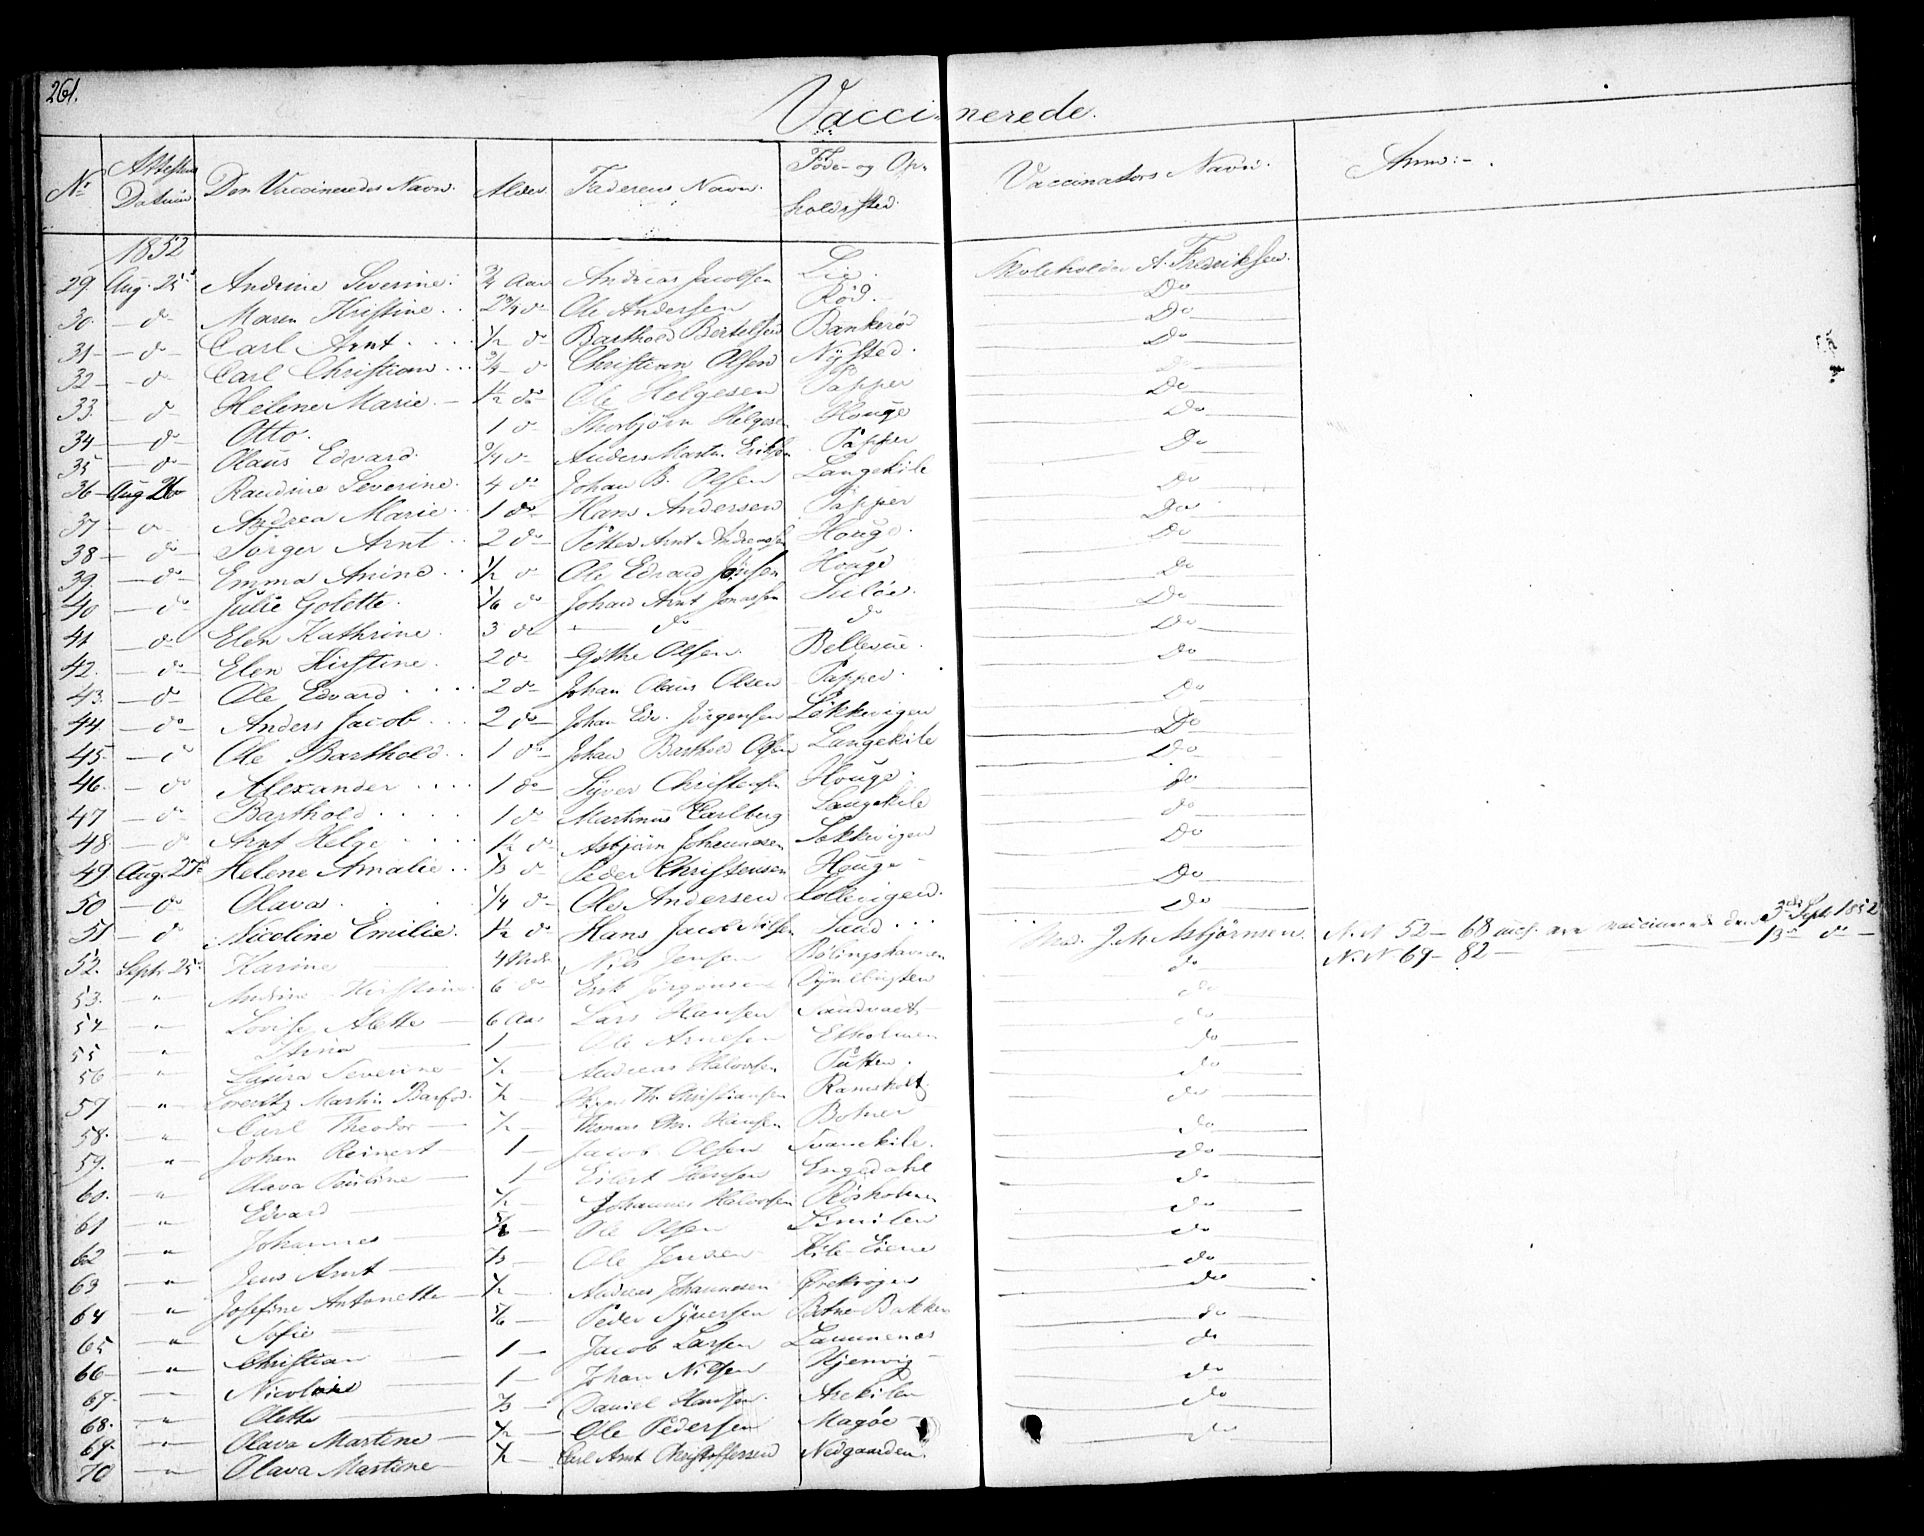 261.
Vaccinerede.
No Attestens Datum Den Vaccineredes Navn. Alder Faderens Navn. Føde- og Opholdssted. Vaccinators Navn. Anm:-
1852
29. Aug. 25 Andrine Severine. 3/4 Aar Andreas Jacobsen Lie. Skoleholder A. Fredriksen.
30. — do Maren Kristine 2 3/4 do Ole Andersen Rød. Do
31 — do Carl Arnt 1/2 do Barthold Bertelsen Bankerød Do
32 — do Carl Christian 3/4 do Christian Olsen Nÿsted. Do
33. — do Helene Marie. 1 1/2 do Ole Helgesen Papper Do
34 — do Otto. 1 do Thorbjørn Helgesen Houge Do
35 — do Olaus Edvard. 3/4 do Anders Martin Eriksen Papper Do
36 — Aug 26 Randine Severine. 4 do Johan B. Olsen Langekile Do
37 — do Andrea Marie 1 do Hans Andersen Papper Do
38 — do Jørger Arnt 2 do Petter Arnt Andreassen Houge. Do
39. — do Emma Anine 1/2 do Ole Edvard Jensen Houge Do
40 — do Julie Golette. 1/6 do Johan Arnt Jonassen Kiløe. Do
41 — do Elen Kathrine. 3 do — do — do Do
42. — do Elen Kirstine. 2 do Gøthe Olsen. Bellevue. Do
43. — do Ole Edvard 2 do Johan Olaus Olsen Papper. Do
44. — do Anders Jacob 2 do Johan Edv. Jørgensen Løkkevigen Do
45. — do Ole Barthold 1 do Johan Barthold Olsen Langekile Do
46. — do Alexander 1 do Syver Christensen Houge. do
47 — do Barthold 1 do Martinus Carlberg Langekile do
48. — do Arnt Helge 1 1/2 do Asbjørn Johannesen Løkkevigen Do
49. Aug. 27 Helene Amalie 1/3 do Peder Christensen Houge Do
50 — do Olava 1/4 do Ole Andersen Kollevigen. Do
51 — do Nicoline Emilie. 1 1/2 do Hans Jacob Nilsen Sand
52. Sept. 25 Karine 4 Mdr Nils Jensen Rølingshavnen J. M. Asbjørnsen. N. N 52 — 68 vaccinerede den 3die Sept 1852
53. " Andrine Kirstine 6 do Erik Jørgensen do N. N 69 — 82 — 13de do
54 " Lovise Alette 6 Aar Lars Hansen Sandvaet do
55 " Stina 1 — Ole Arnesen Ekholmen do
56 " Laura Severine 1/2 Andreas Halvorsen Pütten. do
57 " Lorentz Martin Barfod. 1/2 Th. Christiansen Ramsholt. do
58. " Carl Theodor 1/2 — Thomas Chr. Hansen Botner do
59. " Johan Reinert 1 — Jacob Olsen Svanekile. do
60. " Olava Pauline 1 Eilert Hansen Engedahl do
61 " Edvard 1/2 — Johannes Halvorsen Risholmen do
62 " Johannes 5/6 — Ole Olsen do
63 " Jens Arnt 1/3 — Ole Jensen Kile-Eiene do
64 " Josefine Antonette 1/2 — Andreas Johannesen do
65 " Sofie 5/6 — Peder Syversen Botne-Bakken do
66 " Christian 1 — Jacob Larsen do
67. " Nicolai 1 — Johan Nilsen Kjenvig do
68. " Olette 1/3 — Daniel Hansen. Askilen do
69. " Olava Martine 1/2 — Ole Pedersen Magøe do
70 " Olava Martine 1/2 Carl Arnt Christoffersen Nedgaarden.